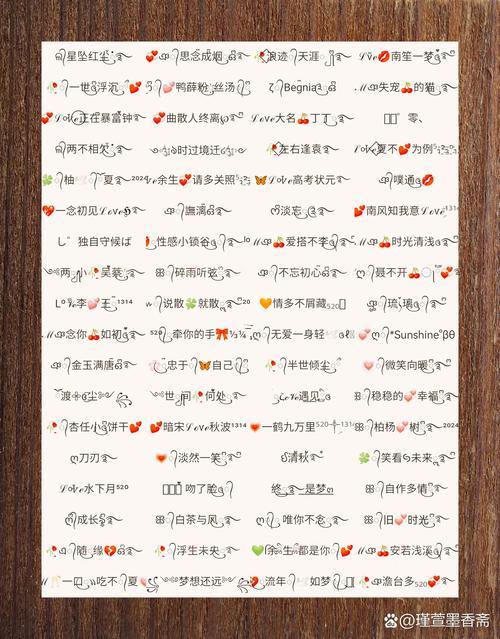 星坠红尘 💕思念成烟 🥀浪迹天涯 Lve💋南笙一梦
🥀一世浮沉💕 💕鸭薛粉丝汤 Begnia 失宠🍒的猫
💕Love正在暴富钟 💕曲散人终离 Love大名🍒丁丁 零、
两不相欠 时过境迁 🥀左右逢袁 Love夏不💕为例
🍀柚夏²⁰²⁴ 余生💕请多关照 🦋Love高考状元 噗通💋
💖一念初见Love 譕漓 淡忘 💕南风知我意Love¹³¹⁴
し゛独自守候ば 性感小锁谷 lo 🍒爱搭不李 🍒时光清浅
两小🥀吴菜 碎雨听弦 不忘初心 聂不开🍒💕
Lº李💕王¹³¹⁴ 说散🍀就散²⁰ 🧡情多不屑藏520 琉璃
念你🍒如初 ⁵²⁰牵你的手🎀⅓¼ 无爱一身轻 💕*Sunshine゛βθ
金玉满唐 忠于🦋自己 🥀半世倾尘 微笑向暖
渡尘 世间🥀何处 Love遇见 稳稳的💕幸福
🥀杏任小饼干💕 💕暗宋Love秋波¹³¹⁴ 一鹤九万里⁵²⁰ 柏杨💕树²⁰²⁴
刀刃 淡然一笑 清秋 🍀笑看未来
Love水下月⁵²⁰ 吻了脸 终是梦 自作多情
成长 白茶与风 唯你不念 旧💕时光
🥀随缘💔 🥀浮生未央 💚余生都是你💕 🍒安若浅溪
一口吃不夏 梦想还远 流年如梦 🥀澹台多520💕
@瑾萱墨香斋